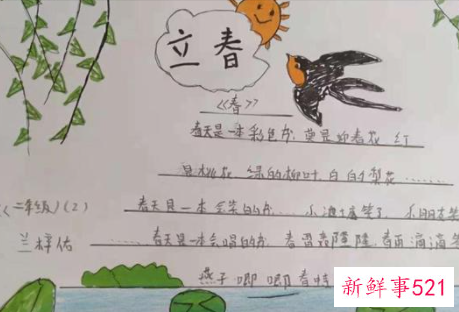 立春
《春》
春天是一本彩色书，黄是迎春花，红
是桃花，绿的柳叶，白白梨花……
二年级（2） 春天是一本会笑的书……小
兰梓佑 春天是一本会唱的书，春雷 隆隆，春雨滴滴
燕子唧唧
新鲜事521